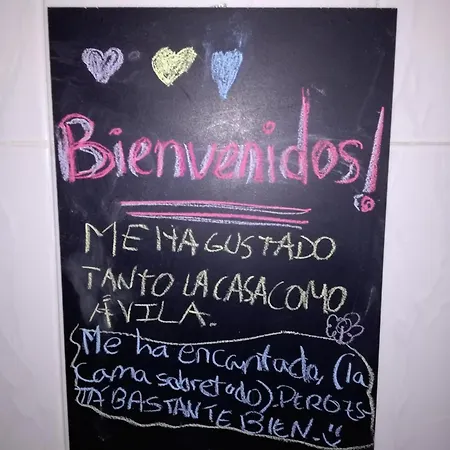 Bienvenidos!
ME HA GUSTADO
TANTO LA CASA COMO
ÁVILA.
Me ha encantada, (la
cama sobretodo). PERO ES-
TA BASTANTE BIEN.